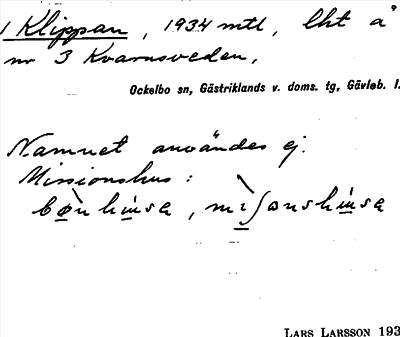 1 Klippan, 1934 mtl, lht å
nr 3 Kvarnsveden,
Ockelbo sn, Gästriklands v. doms. tg, Gävleb. l.
Namnet användes ej.
Missionshus:
LARS LARSSON 193